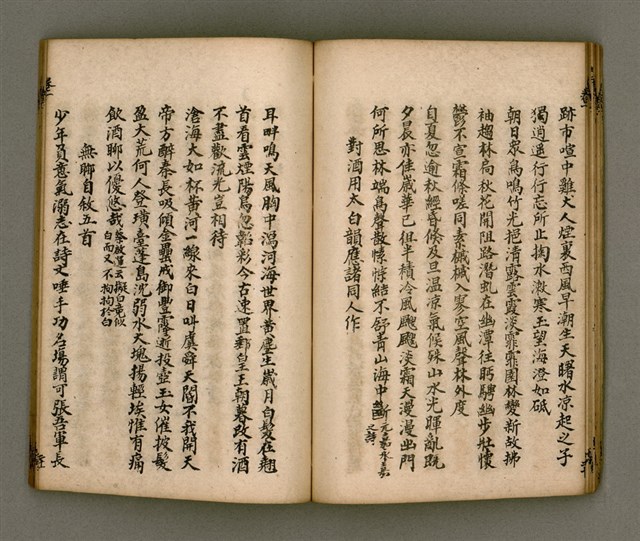 跡市喧中雞犬人煙裏西風早潮生天曙水涼起之子
獨逍遙行行忘所止掬水漱寒玉望海澄如砥
朝日眾鳥鳴竹光挹清露雲霞淡霏霏園林變新故拂
袖趨林扃秋花開阻路潛虬在幽潭往時騁幽步壯懷
鬱不宣霜條嗟同素槭槭入寥空風聲林外度
自夏忽逾秋經昏候及旦溫涼氣候殊山水光暉亂既
夕晨亦佳歲華已徂半積冷風颼颼淡霜天漫漫出門
何所思林端鳥聲散悽悽結不舒青山海中斷
元嘉永嘉之詩
對酒用太白韻應諸同人作
耳畔鳴天風胸中瀉河海世界黃塵生歲月白髮在翹
首看雲煙陽烏忽韜彩今古速置郵皇王朝暮改有酒
不盡歡流光豈相待
滄海大如杯黃河一線來白日叫虞舜天閽不我開天
帝方醉秦長吸傾金罍戒御豐霳逝投壺玉女催披髮
盈大荒何人登璜臺蓬島沈弱水大塊揚輕埃惟有痛
飲酒聊以優悠哉
白而又不拘拘於白
無聊自敘五首
少年負意氣溺志在詩文唾手功名場謂可張吾軍長